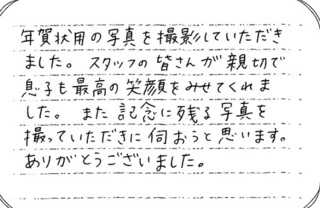 年賀状用の写真を撮影していただき
ました。スタッフの皆さんが親切で
息子も最高の笑顔をみせてくれま
した。また記念に残る写真を
撮っていただきに伺おうと思います。
ありがとうございました。